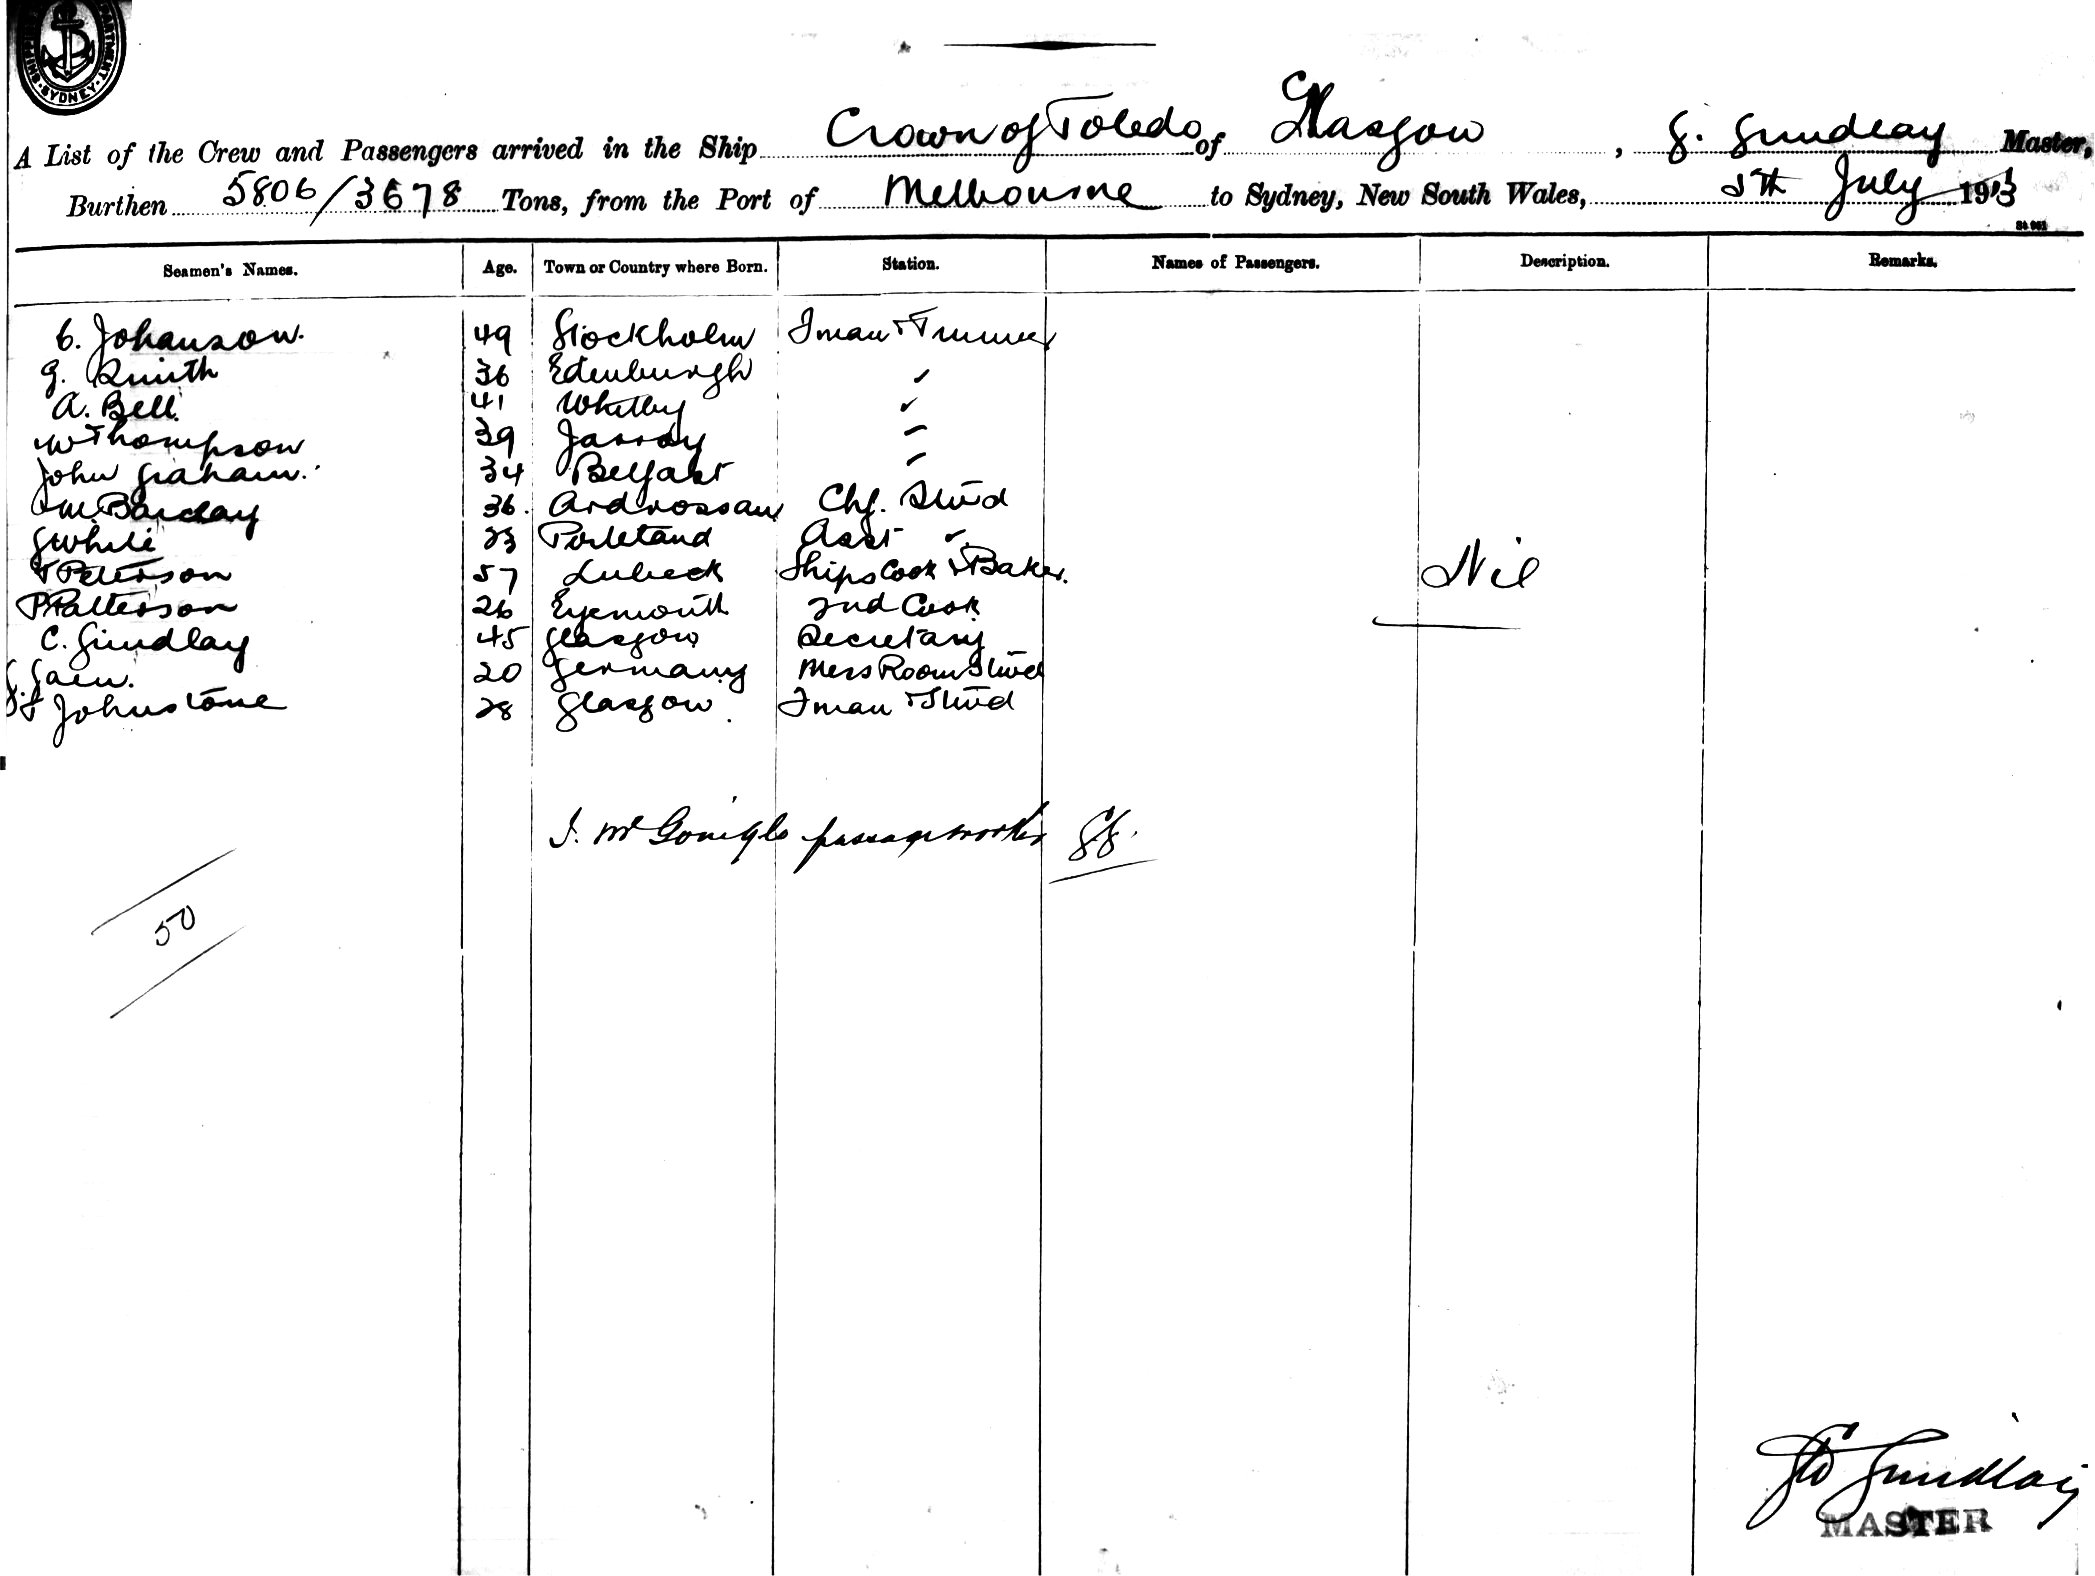 SHIPPING DEPARTMENT SYDNEY
A List of the Crew and Passengers arrived in the Ship Crown of Toledo of Glasgow, G. Gundlay Master,
Burthen 5806/3678 Tons, from the Port of Melbourne to Sydney, New South Wales, 5th July 1913
Seamen's Names. Age. Town or Country where Born. Station. Names of Passengers. Description. Remarks.
C. Johanson. 49 Stockholm Fman & Trimmer
G. Smith 36 Edenburgh ✓
A. Bell 41 Whitby ✓
W Thompson 39 Jarray
John Graham. 34 Belfast
Wm. Barclay 36. Ardrossan Chf. Stwd
G White 23 Asst ✓
Peterson 57 Lubeck Ships Cook & Baker.
P Patterson 26 Eyemouth 2nd Cook
C. Gundlay 45 Glasgow Secretary
20 Germany Mess Room Stwd
Johnstone 28 Glasgow. Fman & Stwd
Nil
J. McGonigle passage worker
50
Gundlay
MASTER